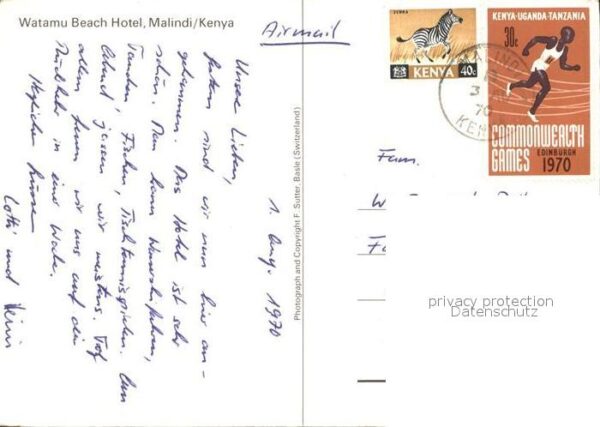 Watamu Beach Hotel, Malindi/Kenya
Airmail
1. Aug. 1970
Unsere Lieben,
sind wir nun hier an-
gekommen. Das Hotel ist sehr
schön. Man kann Wasserskifahren,
Tauchen, Fischen, Tischtennisspielen. Am
Abend jassen wir meistens. Vor
allem freuen wir uns auf die
Rückkehr in einer Woche.
Herzliche Grüsse
Lotti und Heini
Photograph and Copyright F. Sutter, Basle (Switzerland)
ZEBRA
KENYA 40c
KENYA·UGANDA·TANZANIA
30c
COMMONWEALTH
GAMES EDINBURGH
1970
MALINDI
3
70
KENYA
Fam.
privacy protection
Datenschutz